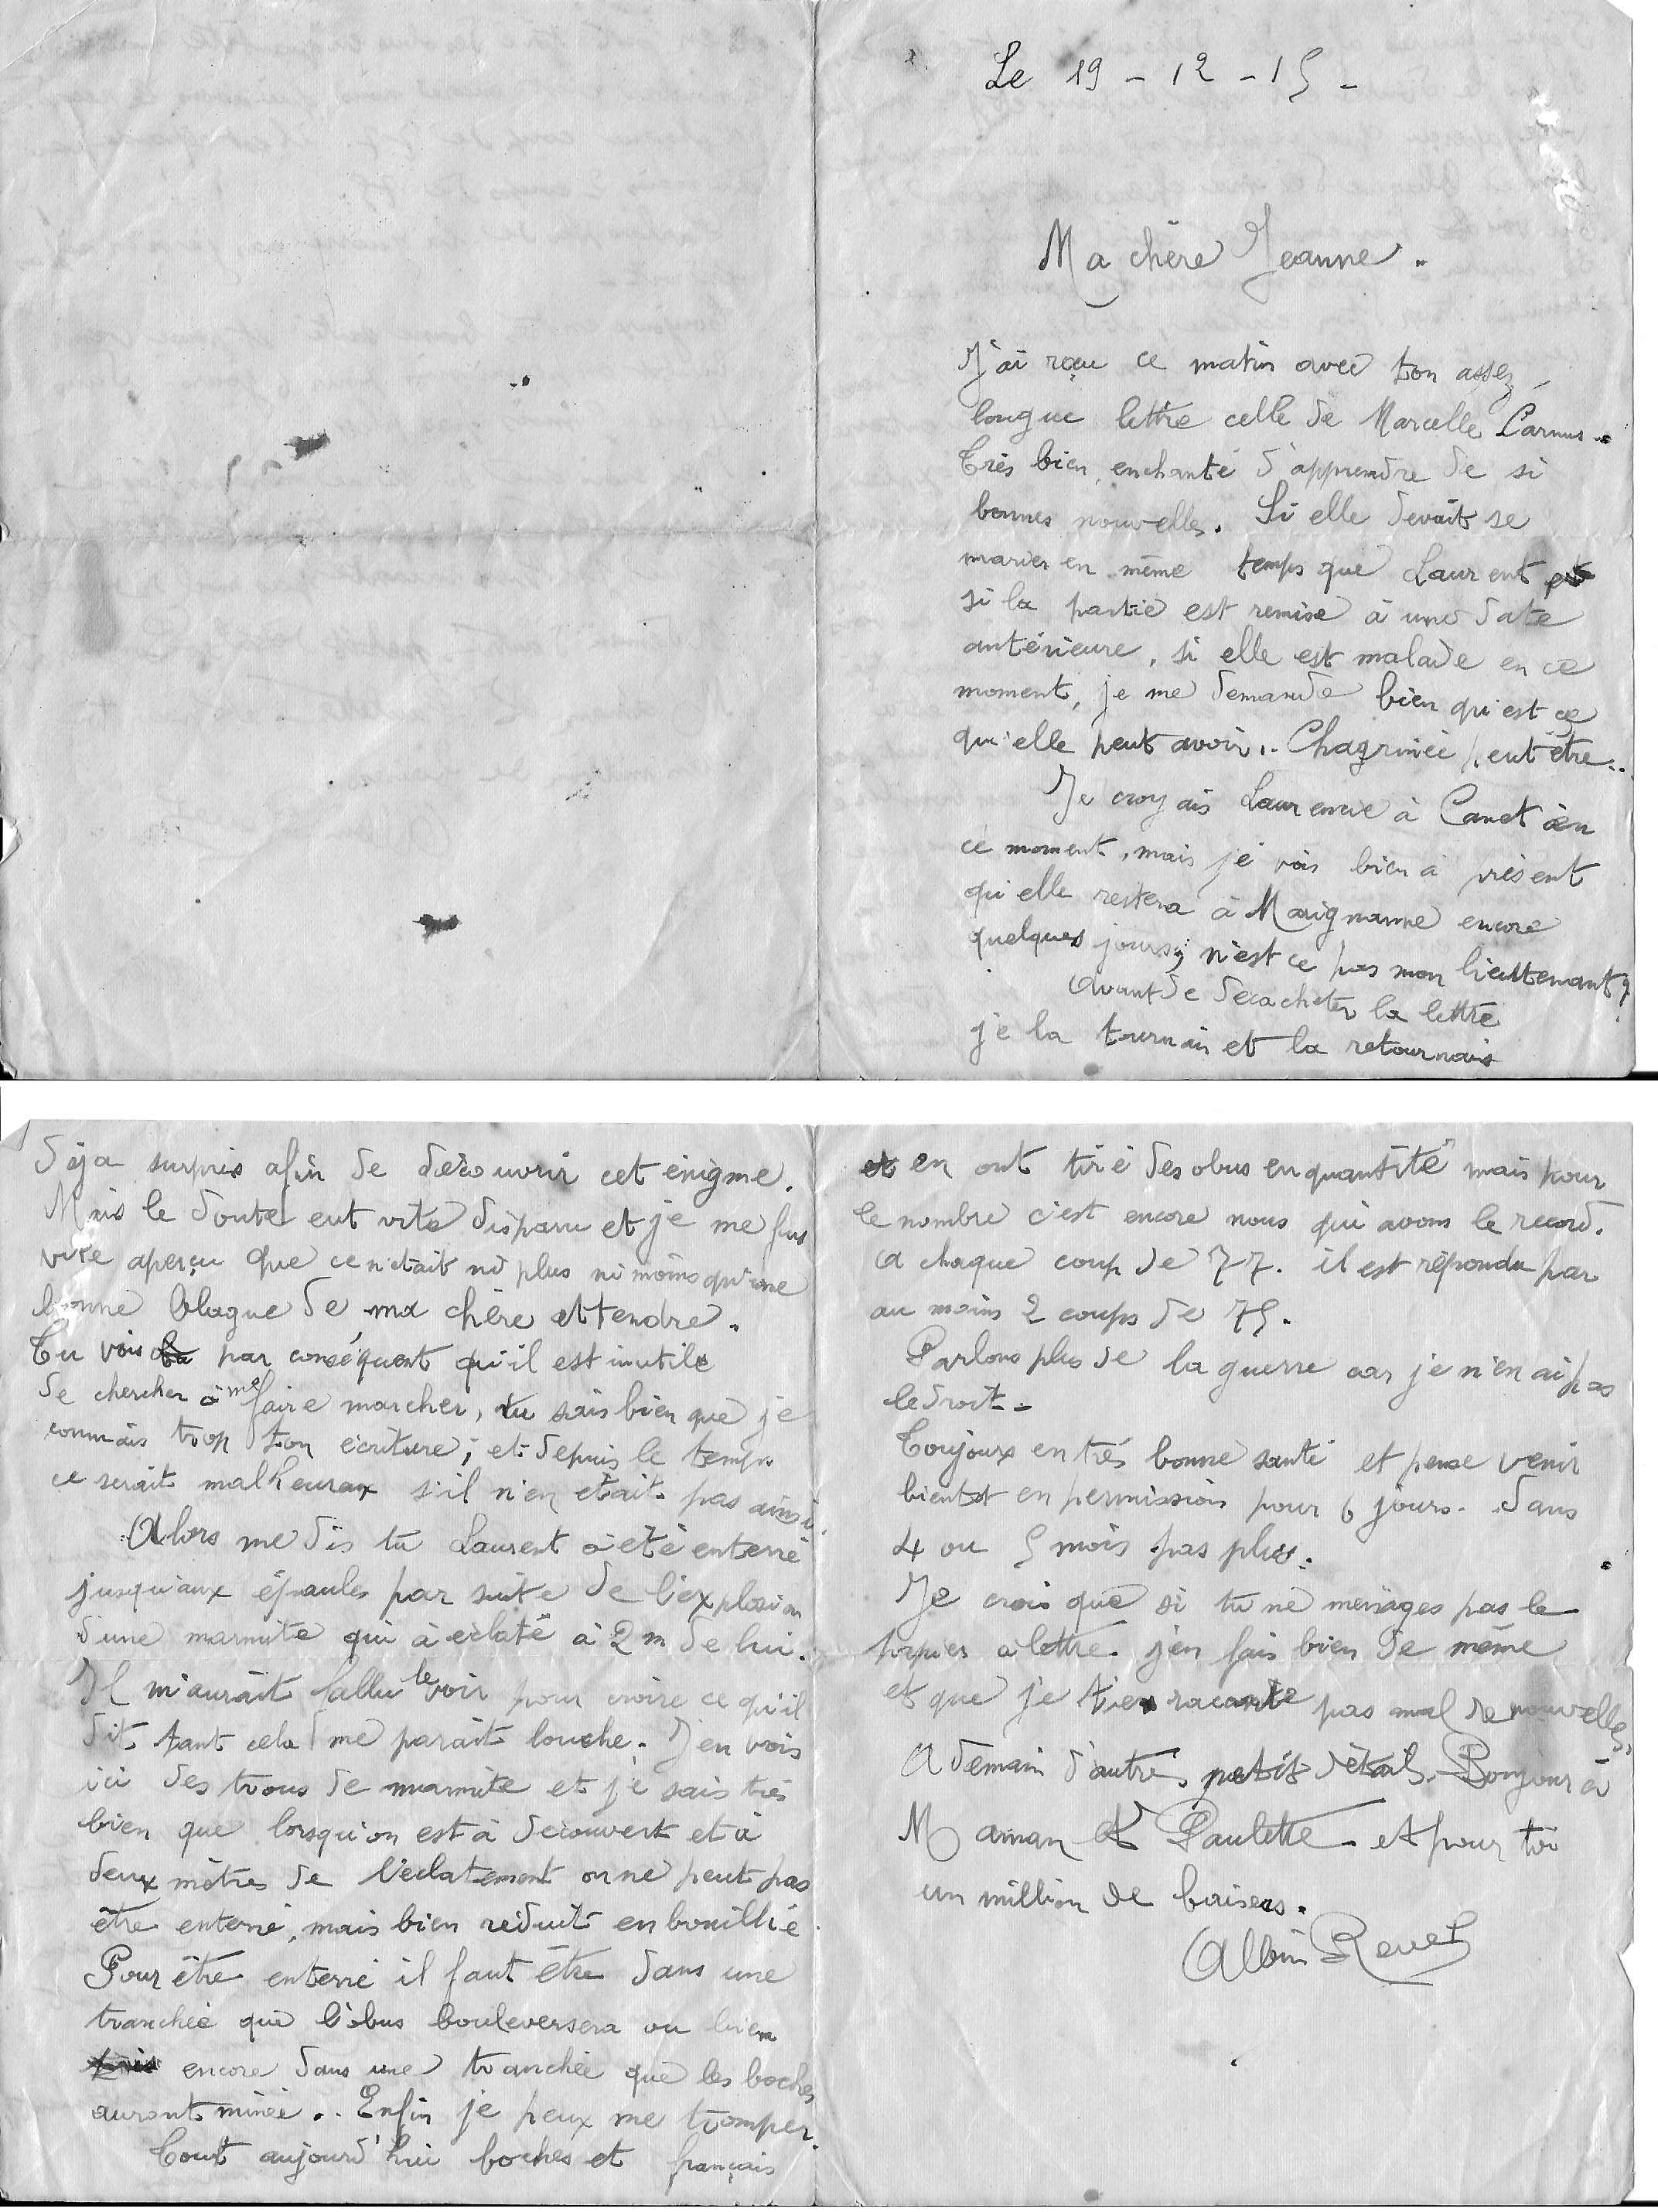 Le 19 - 12 - 15 -
Ma chère Jeanne.
J'ai reçu ce matin avec ton assez
longue lettre celle de Marcelle Carnus.
Très bien, enchanté d'apprendre de si
bonnes nouvelles. Si elle devait se
marier en même temps que Laurent et
si la partie est remise à une date
antérieure, si elle est malade en ce
moment, je me demande bien qu'est ce
qu'elle peut avoir.. Chagrinée peut être..
Je croyais Laurence à Canet en
ce moment, mais je vois bien à présent
qu'elle restera à Maignanne encore
quelques jours; n'est ce pas mon lieuttenant?
Avant de decacheter la lettre
je la tournais et la retournais
déja surpris afin de découvrir cet énigme.
Mais le doute eut vite disparu et je me fus
vite aperçu que ce n'était ni plus ni moins qu'une
bonne blague de ma chère et tendre.
Tu vois par conséquent qu'il est inutile
de chercher à me faire marcher, tu sais bien que je
connais trop ton écriture; et depuis le temps
ce serait malheureux s'il n'en était pas ainsi.
Alors me dis tu Laurent à été enterré
jusqu'aux épaules par suite de l'explosion
d'une marmite qui à eclaté à 2m de lui.
Il m'aurait fallu le voir pour croire ce qu'il
dit tant cela me parait louche. J'en vois
ici des trous de marmite et je sais très
bien que lorsqu'on est à découvert et à
deux mètres de l'éclatement on ne peut pas
être enterré, mais bien réduit en bouillie
Pour être enterré il faut être dans une
tranchée que l'obus bouleversera ou bien
encore dans une tranchée que les boches
auront minée.. Enfin je peux me tromper.
Tout aujourd'hui boches et français
et en ont tiré des obus en quantité mais pour
le nombre c'est encore nous qui avons le record.
A chaque coup de 77. il est répondu par
au moins 2 coups de 75.
Parlons plus de la guerre car je n'en ai pas
le droit.
Toujours en très bonne santé et pense venir
bientot en permission pour 6 jours. dans
4 ou 5 mois pas plus.
Je crois que si tu ne ménages pas le
papier à lettre. j'en fais bien de même
et que je t'en raconte pas mal de nouvelles.
A demain d'autres petits détails. Bonjour à
Maman et Paulette. et pour toi
un million de baisers.
Albin Revel